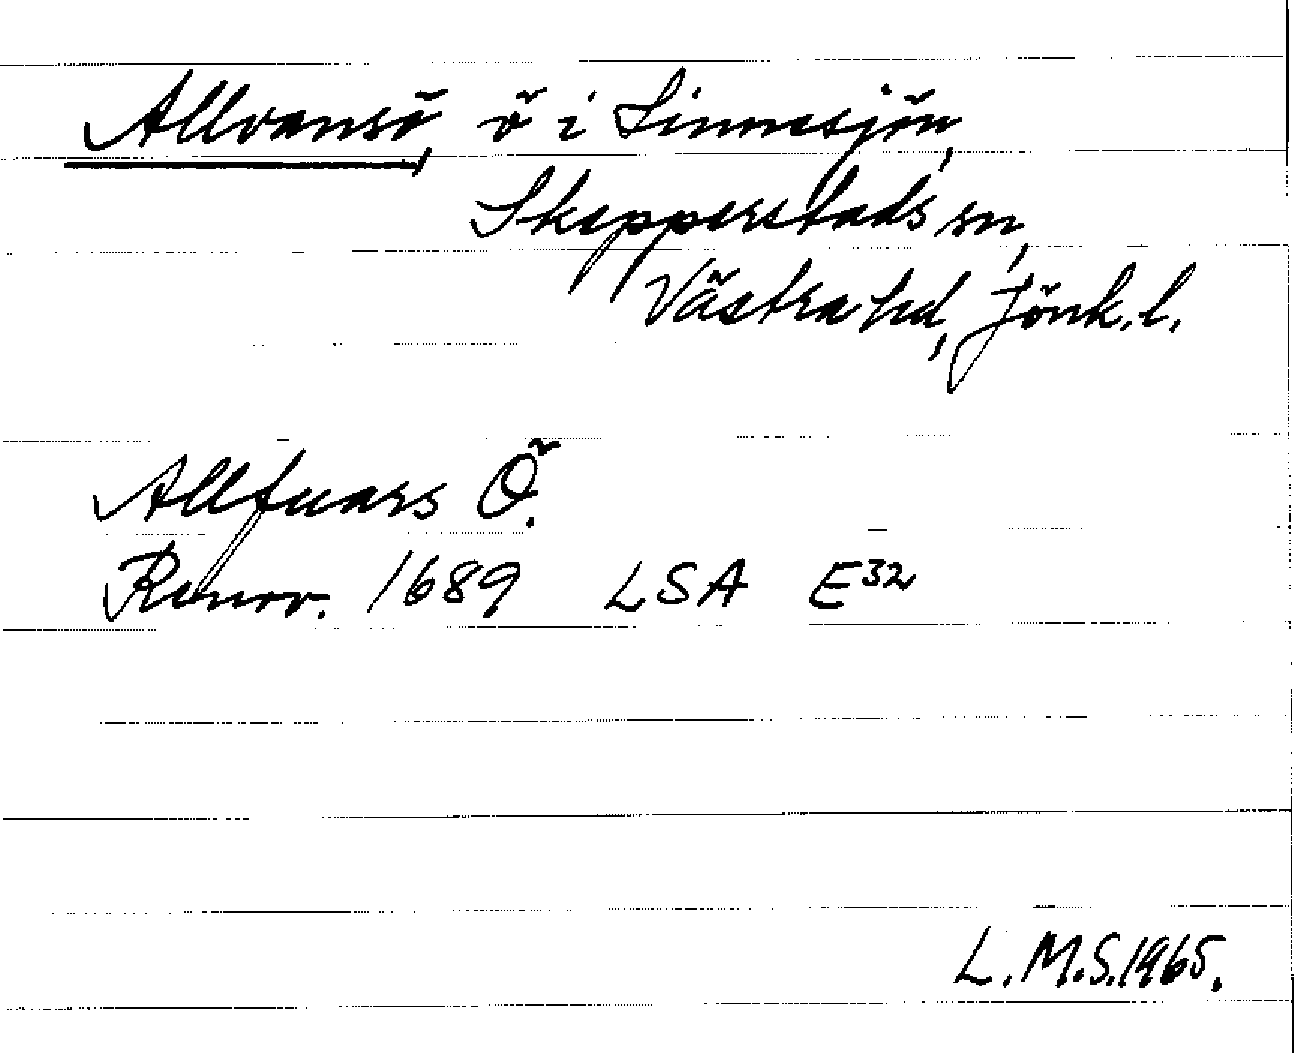 Allvansö, ö i Linnesjön,
Skepperstads sn,
Västra hd, Jönk. l.
Allfuars Ö.
Renov. 1689 LSA E³²
L.M.S. 1965.